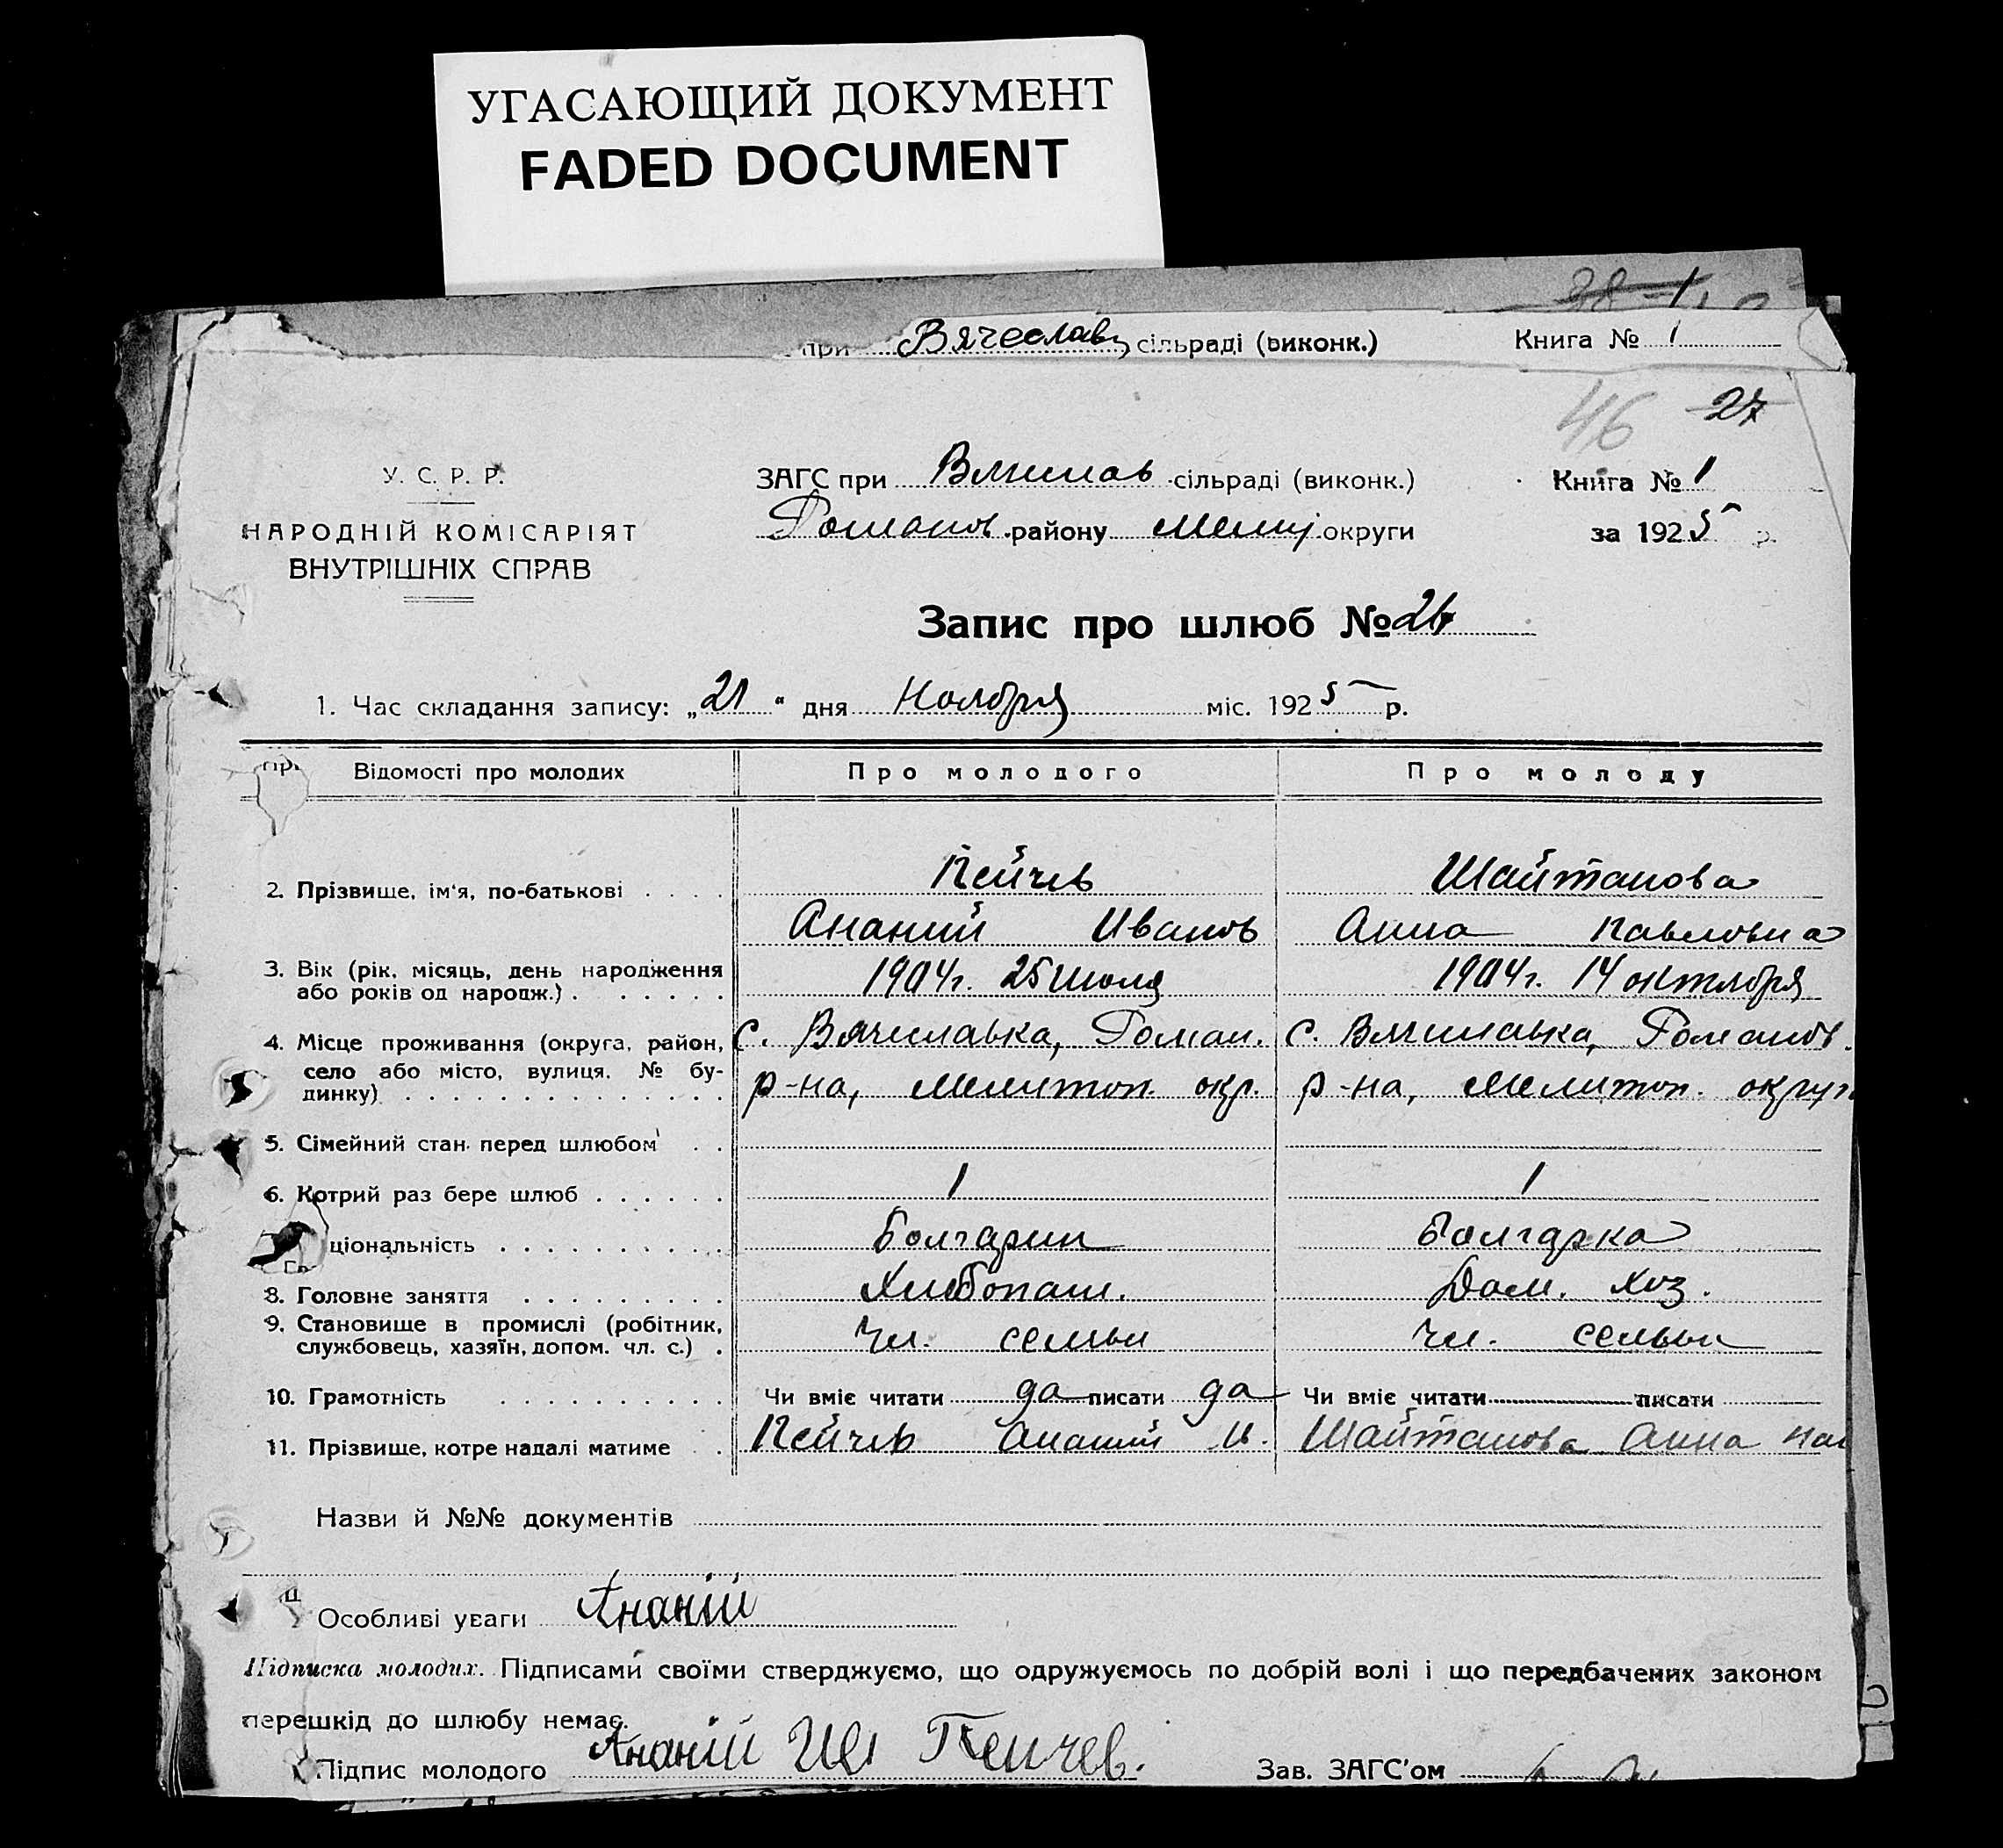 УГАСАЮЩИЙ ДОКУМЕНТ
FADED DOCUMENT
при Вячеславк сільраді (виконк.) Книга № 1
46 27
У. С. Р. Р.
НАРОДНІЙ КОМІСАРІЯТ
ВНУТРІШНІХ СПРАВ
ЗАГС при Вячислав сільраді (виконк.) Книга № 1
Романов. району Мелит округи за 1925 р.
Запис про шлюб №
1. Час складання запису: „21“ дня Ноября міс. 1925 р.
Відомості про молодих Про молодого Про молоду
2. Прізвище, ім'я, по-батькові Пейчев Шайтанова
Ананий Иванов Анна Павловна
3. Вік (рік, місяць, день народження 1904г. 25 Июля 1904г. 14 октября
або років од народж.)
4. Місце проживання (округа, район, с. Вячиславка, Роман. с. Вячиславка, Романов.
село або місто, вулиця, № бу- р-на, Мелитоп. окр. р-на, Мелитоп. округ.
динку)
5. Сімейний стан перед шлюбом
6. Котрий раз бере шлюб 1 1
ціональність Болгарин Болгарка
8. Головне заняття Хлебопаш. Дом. хоз.
9. Становище в промислі (робітник, чл. семьи чл. семьи
службовець, хазяїн, допом. чл. с.)
10. Грамотність Чи вміє читати да писати да Чи вміє читати писати
11. Прізвище, котре надалі матиме Пейчев Ананий И. Шайтанова Анна Пав
Назви й №№ документів
Особливі уваги Ананій
Підписка молодих. Підписами своїми стверджуємо, що одружуємось по добрій волі і що передбачених законом
перешкід до шлюбу немає.
Підпис молодого Ананій Ив Пейчев. Зав. ЗАГС'ом